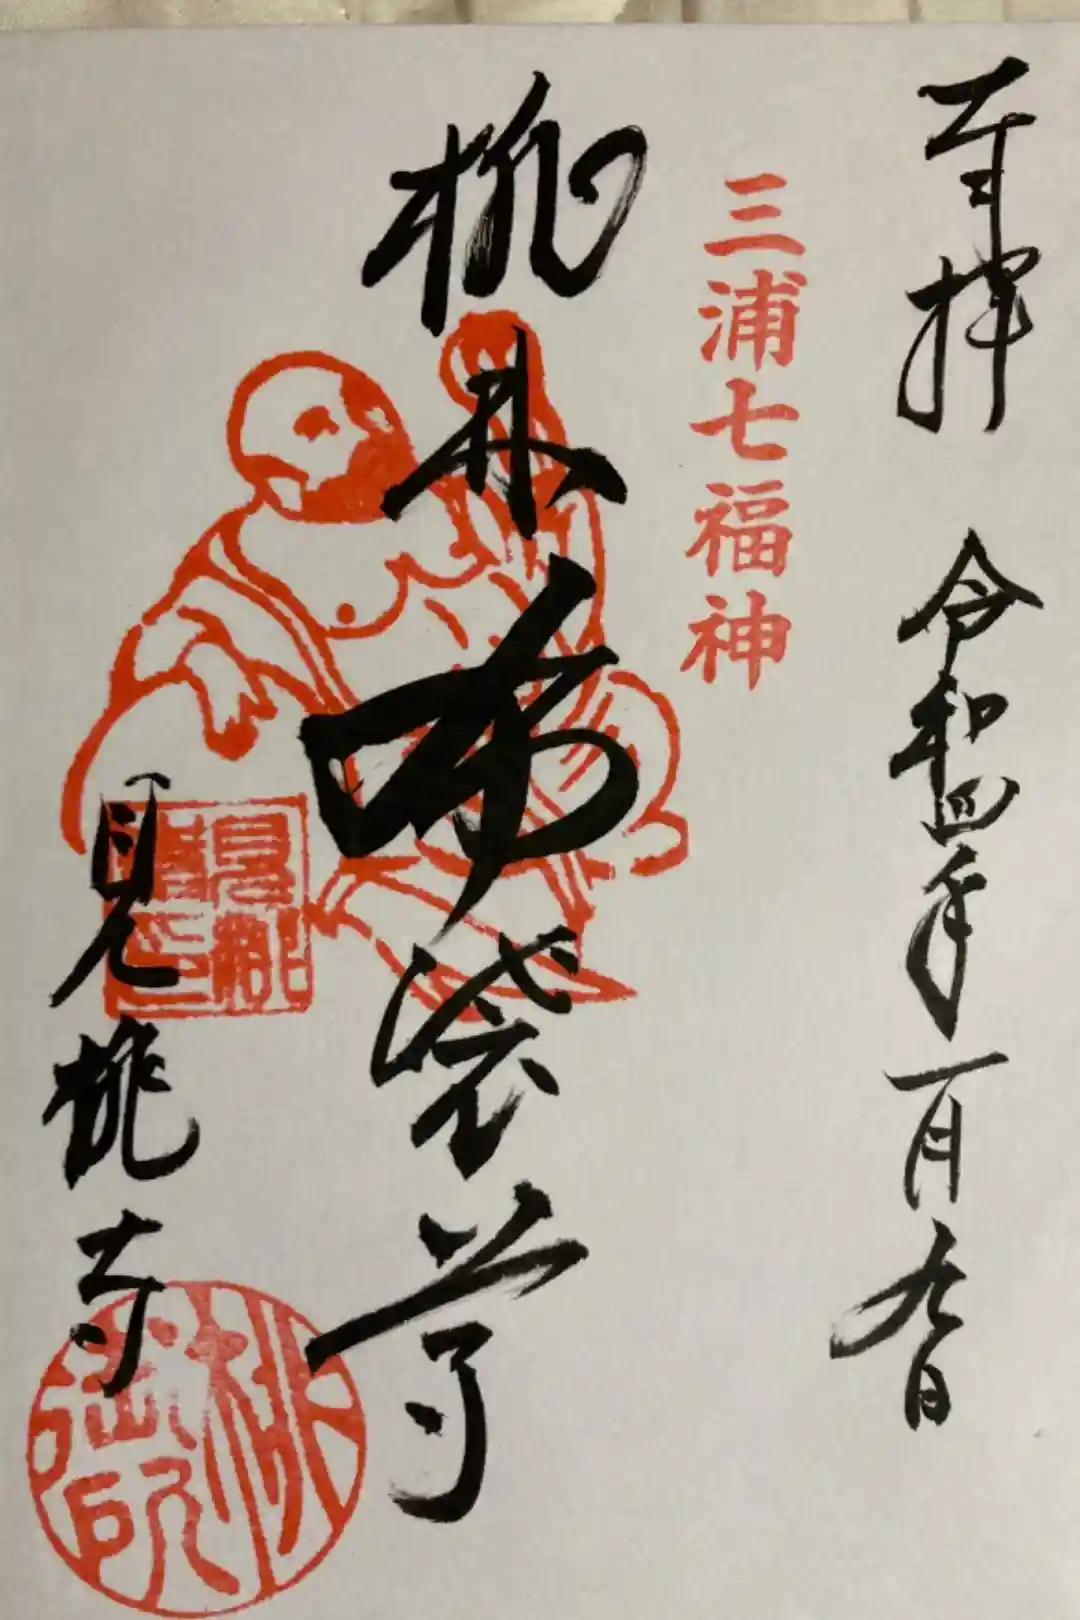 奉拝 令和四年一月九日
三浦七福神
桃林布袋尊
見桃寺